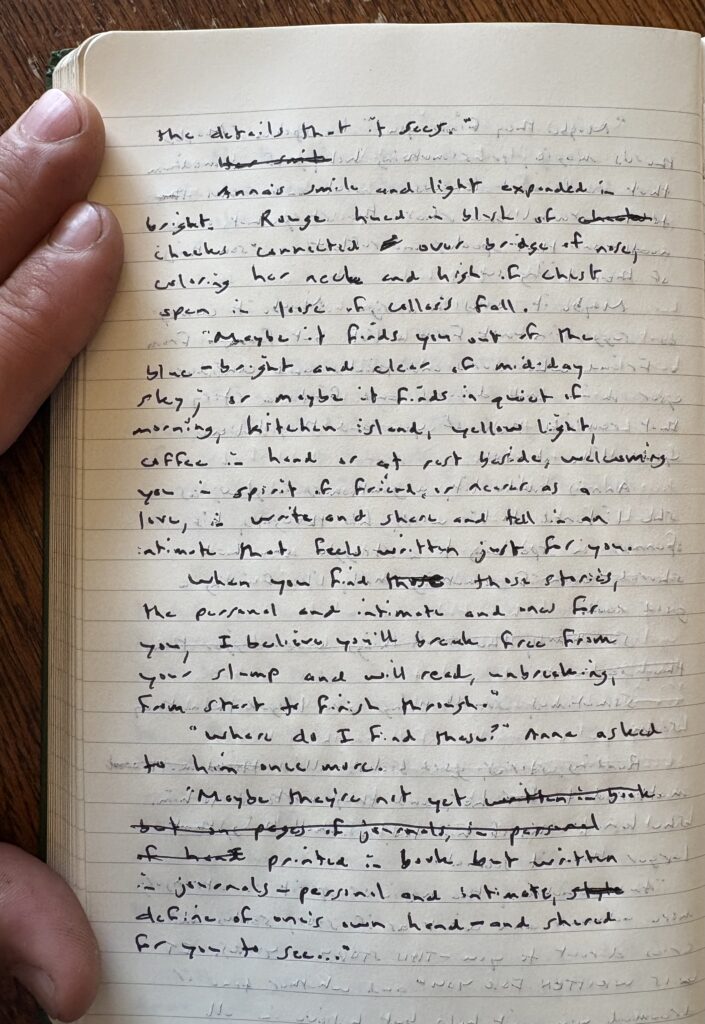 the details that it sees."
Her smile
Anna's smile and light expanded in
bright. Rouge hued in blush of cheeks
cheeks connected over bridge of nose,
coloring her neck and high of chest
open in loose of collar's fall.
"Maybe it finds you out of the
blue - bright and clear of mid-day
sky; or maybe it finds in quiet of
morning, kitchen island, yellow light,
coffee in hand or at rest beside, welcoming
you in spirit of friend, or nearer as a
love, in write and share and tell in an
intimate that feels written just for you.
When you find those those stories,
the personal and intimate and ones for
you, I believe you'll break free from
your slump and will read, unbreaking,
from start to finish through."
"Where do I find these?" Anna asked
to him once more.
"Maybe they're not yet written in book
but on pages of journals, in personal
of hand printed in book but written
in journals - personal and intimate, style
define of one's own hand - and shared
for you to see..."